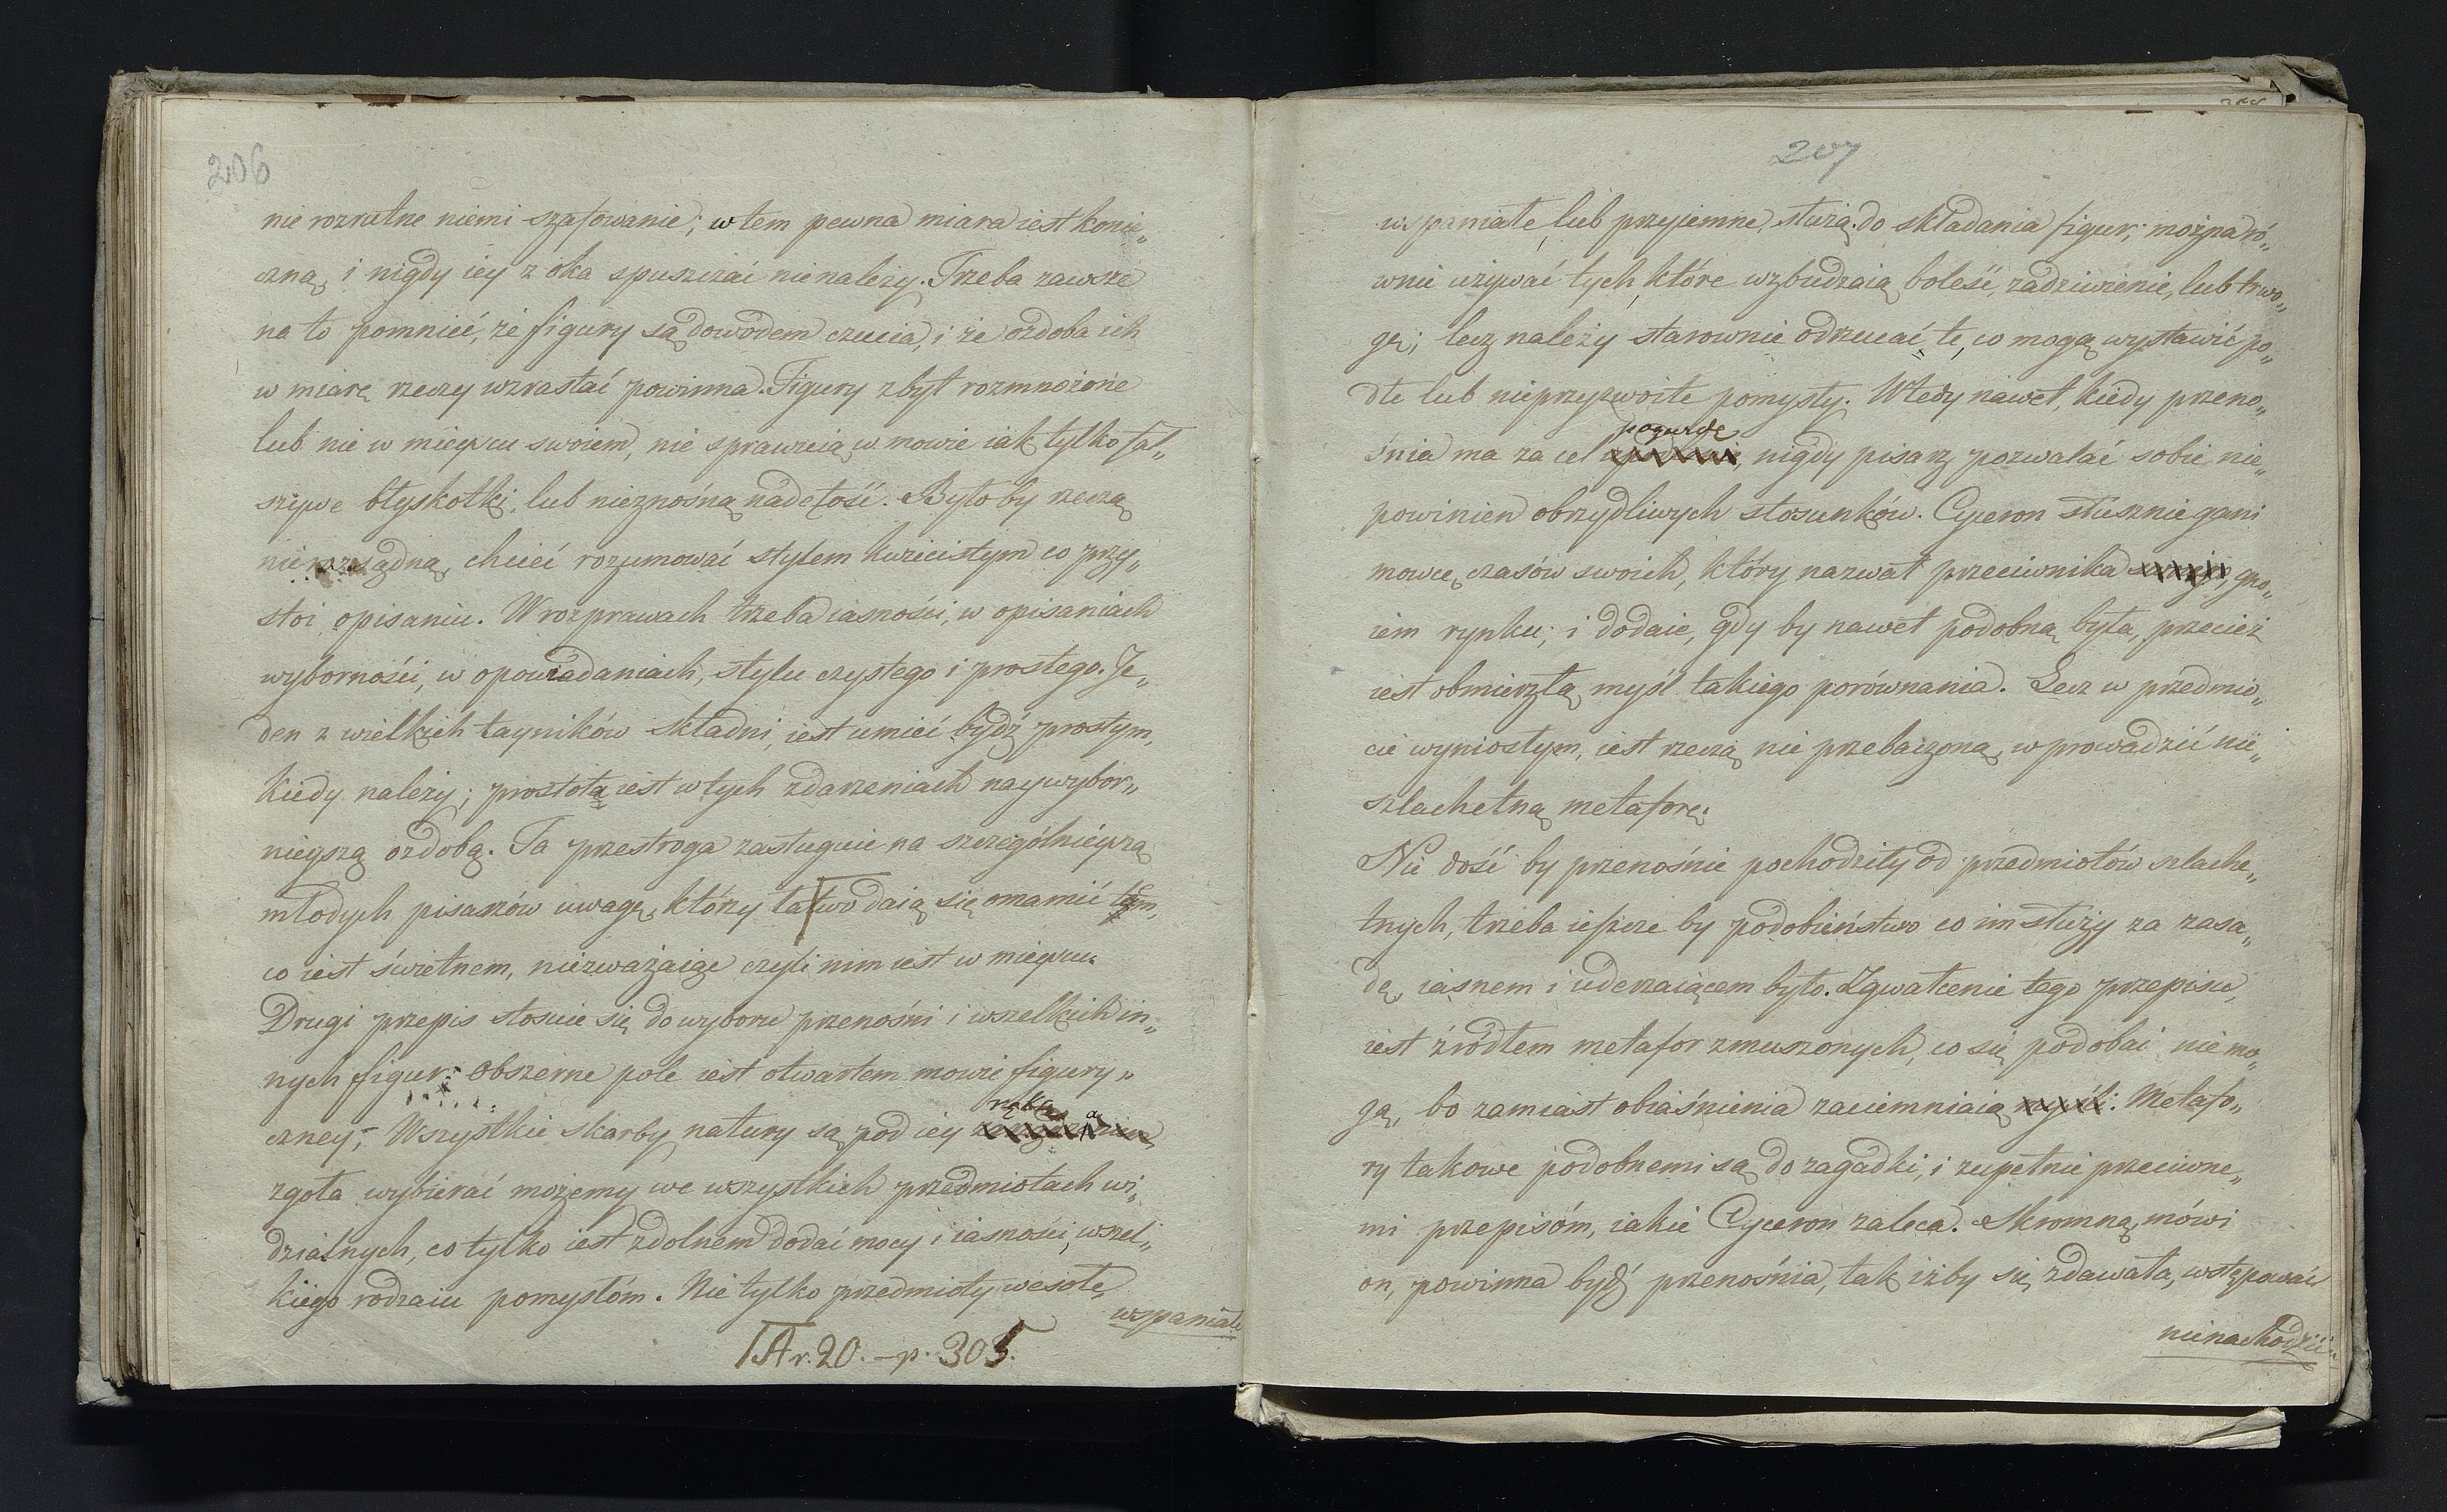 206
nie rozrutne niemi szafowanie; w tem pewna miara iest konie„
czną, i nigdy iey z oka spuszczać nienależy. Trzeba zawsze
na to pomnieć, że figury są dowodem czucia, i że ozdoba ich
w miarę rzeczy wzrastać powinna. Figury zbyt rozmnożone
lub nie w mieyscu swoiem, nie sprawuią w mowie iak tylko fał„
szywe błyskotki, lub nieznośną nadętość. Było by rzeczą
nierozsądną, chcieć rozumować stylem kwiecistym co przy„
stoi opisaniu. W rozprawach trzeba iasności, w opisaniach
wyborności, w opowiadaniach, stylu czystego i prostego. Je„
den z wielkich tayników składni, iest umieć bydź prostym,
kiedy należy; prostota iest w tych zdarzeniach naywybor„
nieyszą ozdobą. Ta przestroga zasługuie na szczególnieyszą
młodych pisarzów uwagę, którzy łatwo daią się omamić tem,
co iest świetnem, niezważaiąc czyli nim iest w mieyscu.
Drugi przepis stosuie się do wyboru przenośni i wszelkich in„
nych figur: obszerne pole iest otwartem mowie figury„
ręką
czney; Wszystkie skarby natury są pod iey
zgoła wybierać możemy we wszystkich przedmiotach wi„
dzialnych, co tylko iest zdolnem dodać mocy i iasności, wszel„
kiego rodzaiu pomysłóm. Nie tylko przedmioty wesołe
wspaniałe
Ar. 20. – p. 305.
207
wspaniałe, lub przyiemne, służą do składania figur; można ró„
wnie używać tych, które wzbudzaią boleść, zadziwienie, lub trwo„
gę; lecz należy starownie odrzucać te, co mogą wystawić po„
dłe lub nieprzyzwoite pomysły. Wtedy nawet, kiedy przeno„
pogardę
śnia ma za cel, nigdy pisarz pozwalać sobie nie„
powinien obrzydliwych stosunków. Cyceron słusznie gani
mowcę czasów swoich, który nazwał przeciwnika gno„
iem rynku; i dodaie, gdy by nawet podobną była, przecież
iest obmierzłą myśl takiego porównania. Lecz w przedmio„
cie wyniosłym, iest rzeczą nie przebaczoną, wprowadzić nie„
szlachetną metaforę.
Nie dość by przenośnie pochodziły od przedmiotów szlache„
tnych, trzeba ieszcze by podobieństwo co im służy za zasa„
dę, iasnem i uderzaiącem było. Zgwałcenie tego przepisu,
iest źródłem metafor zmuszonych, co się podobać nie mo„
gą, bo zamiast obiaśnienia zaciemniaią myśl: Metafo„
ry takowe podobnemi są do zagadki, i zupełnie przeciwne„
mi przepisóm, iakie Cyceron zaleca. Skromną, mówi
on, powinna bydź przenośnia, tak iżby się zdawała, wstępować
nienachodzić